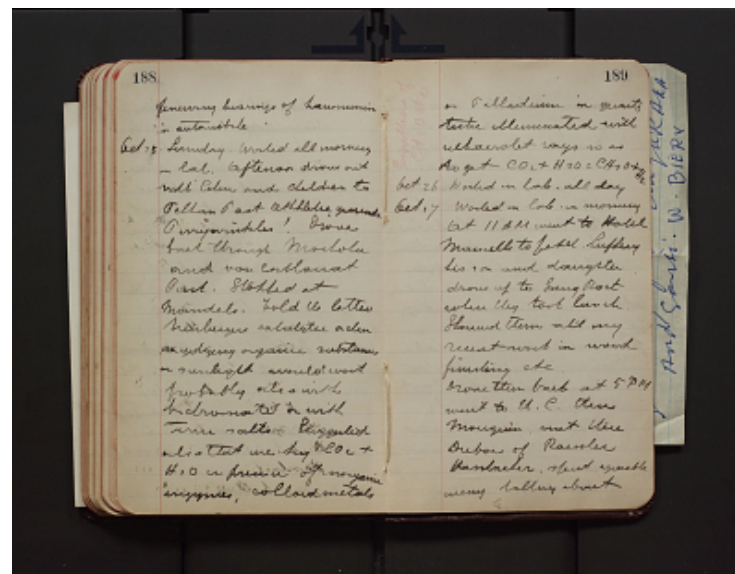 188
renewing bearings of
in automobile
Oct. Sunday. Worked all morning
in lab. Afternoon drove out
with Celine and children to
Pelham Past Athletic grounds
Periwinkles! Drove
through Mosholu
and van Cortlandt
Park. Stopped at
Mandels. Told the latter
oxidizing organic substances
in sunlight would work
probably also with
bichromates or with
salts. Suggested
also that we try CO2 +
H2O in presence of inorganic
enzymes, colloid metals
189
or Palladium in quartz
tube illuminated with
ultraviolet rays so as
to get CO2 + H2O = CH2O +
Oct 26 Worked in lab. all day
Oct. 27 Worked in lab. in morning
at 11 AM went to Hotel
to fetch
his son and daughter
drove up to Snug Rock
where they took lunch
Showed them all my
recent work in wood
finishing etc.
Drove them back at 5 PM
went to U. C. then
Mouquin, met there
of Roessler
Hasslacher, spent agreeable
evening talking about
W. BIERY